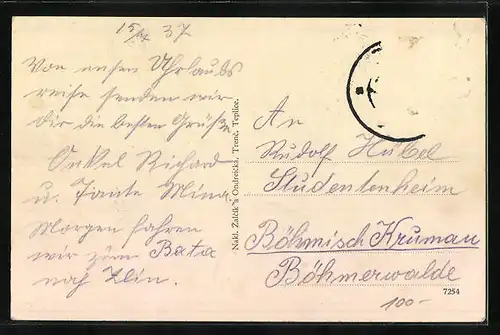 15/IX 37
Von unsern Uhrlaubs
reise senden wir
dir die besten Grüße
Onkel Richard
u. Tante Mina.
Morgen fahren
wir zum Bata
nach Zlin.
Nakl. Žalčík a Ondreička, Trenč. Teplice.
An
Rudolf Hübel
Studentenheim
Böhmisch Krumau
Böhmerwalde
7254
100-